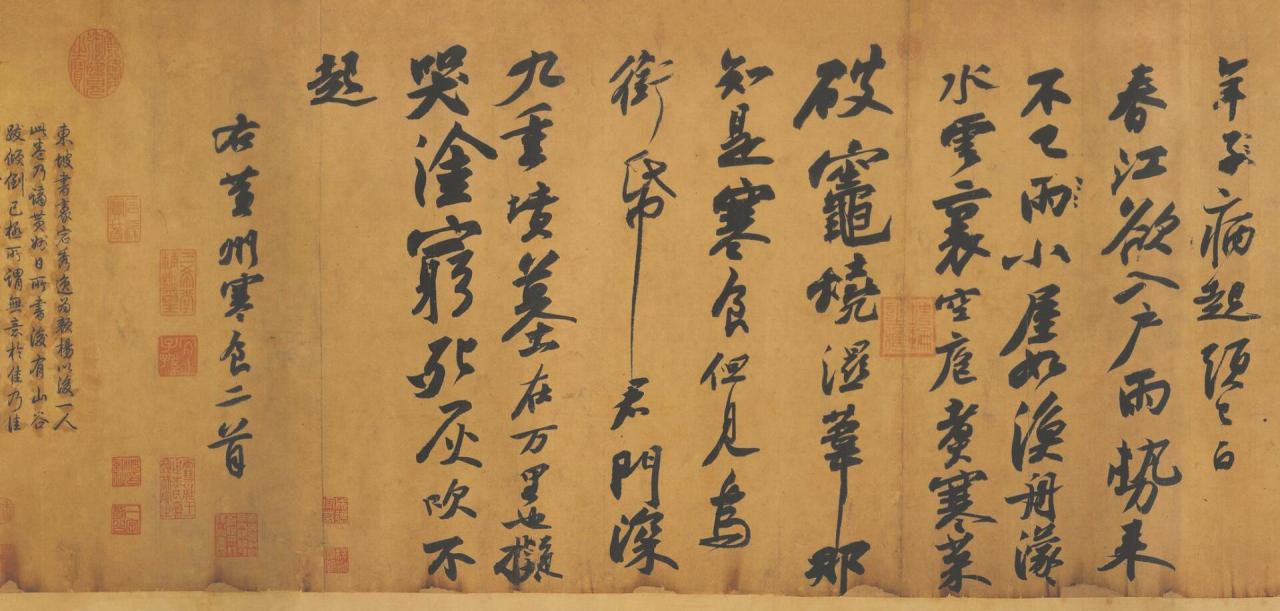 年子病起頭已白
春江欲入戶雨勢來
不已雨小屋如漁舟濛〻
水雲裏空庖煮寒菜
破竈燒濕葦那
知是寒食但見烏
銜帋君門深
九重墳墓在万里也擬
哭塗窮死灰吹不
起
右黃州寒食二首
東坡書豪宕秀逸為顏楊以後一人
此卷乃謫黃州日所書後有山谷
跋傾倒已極所謂無意於佳乃佳